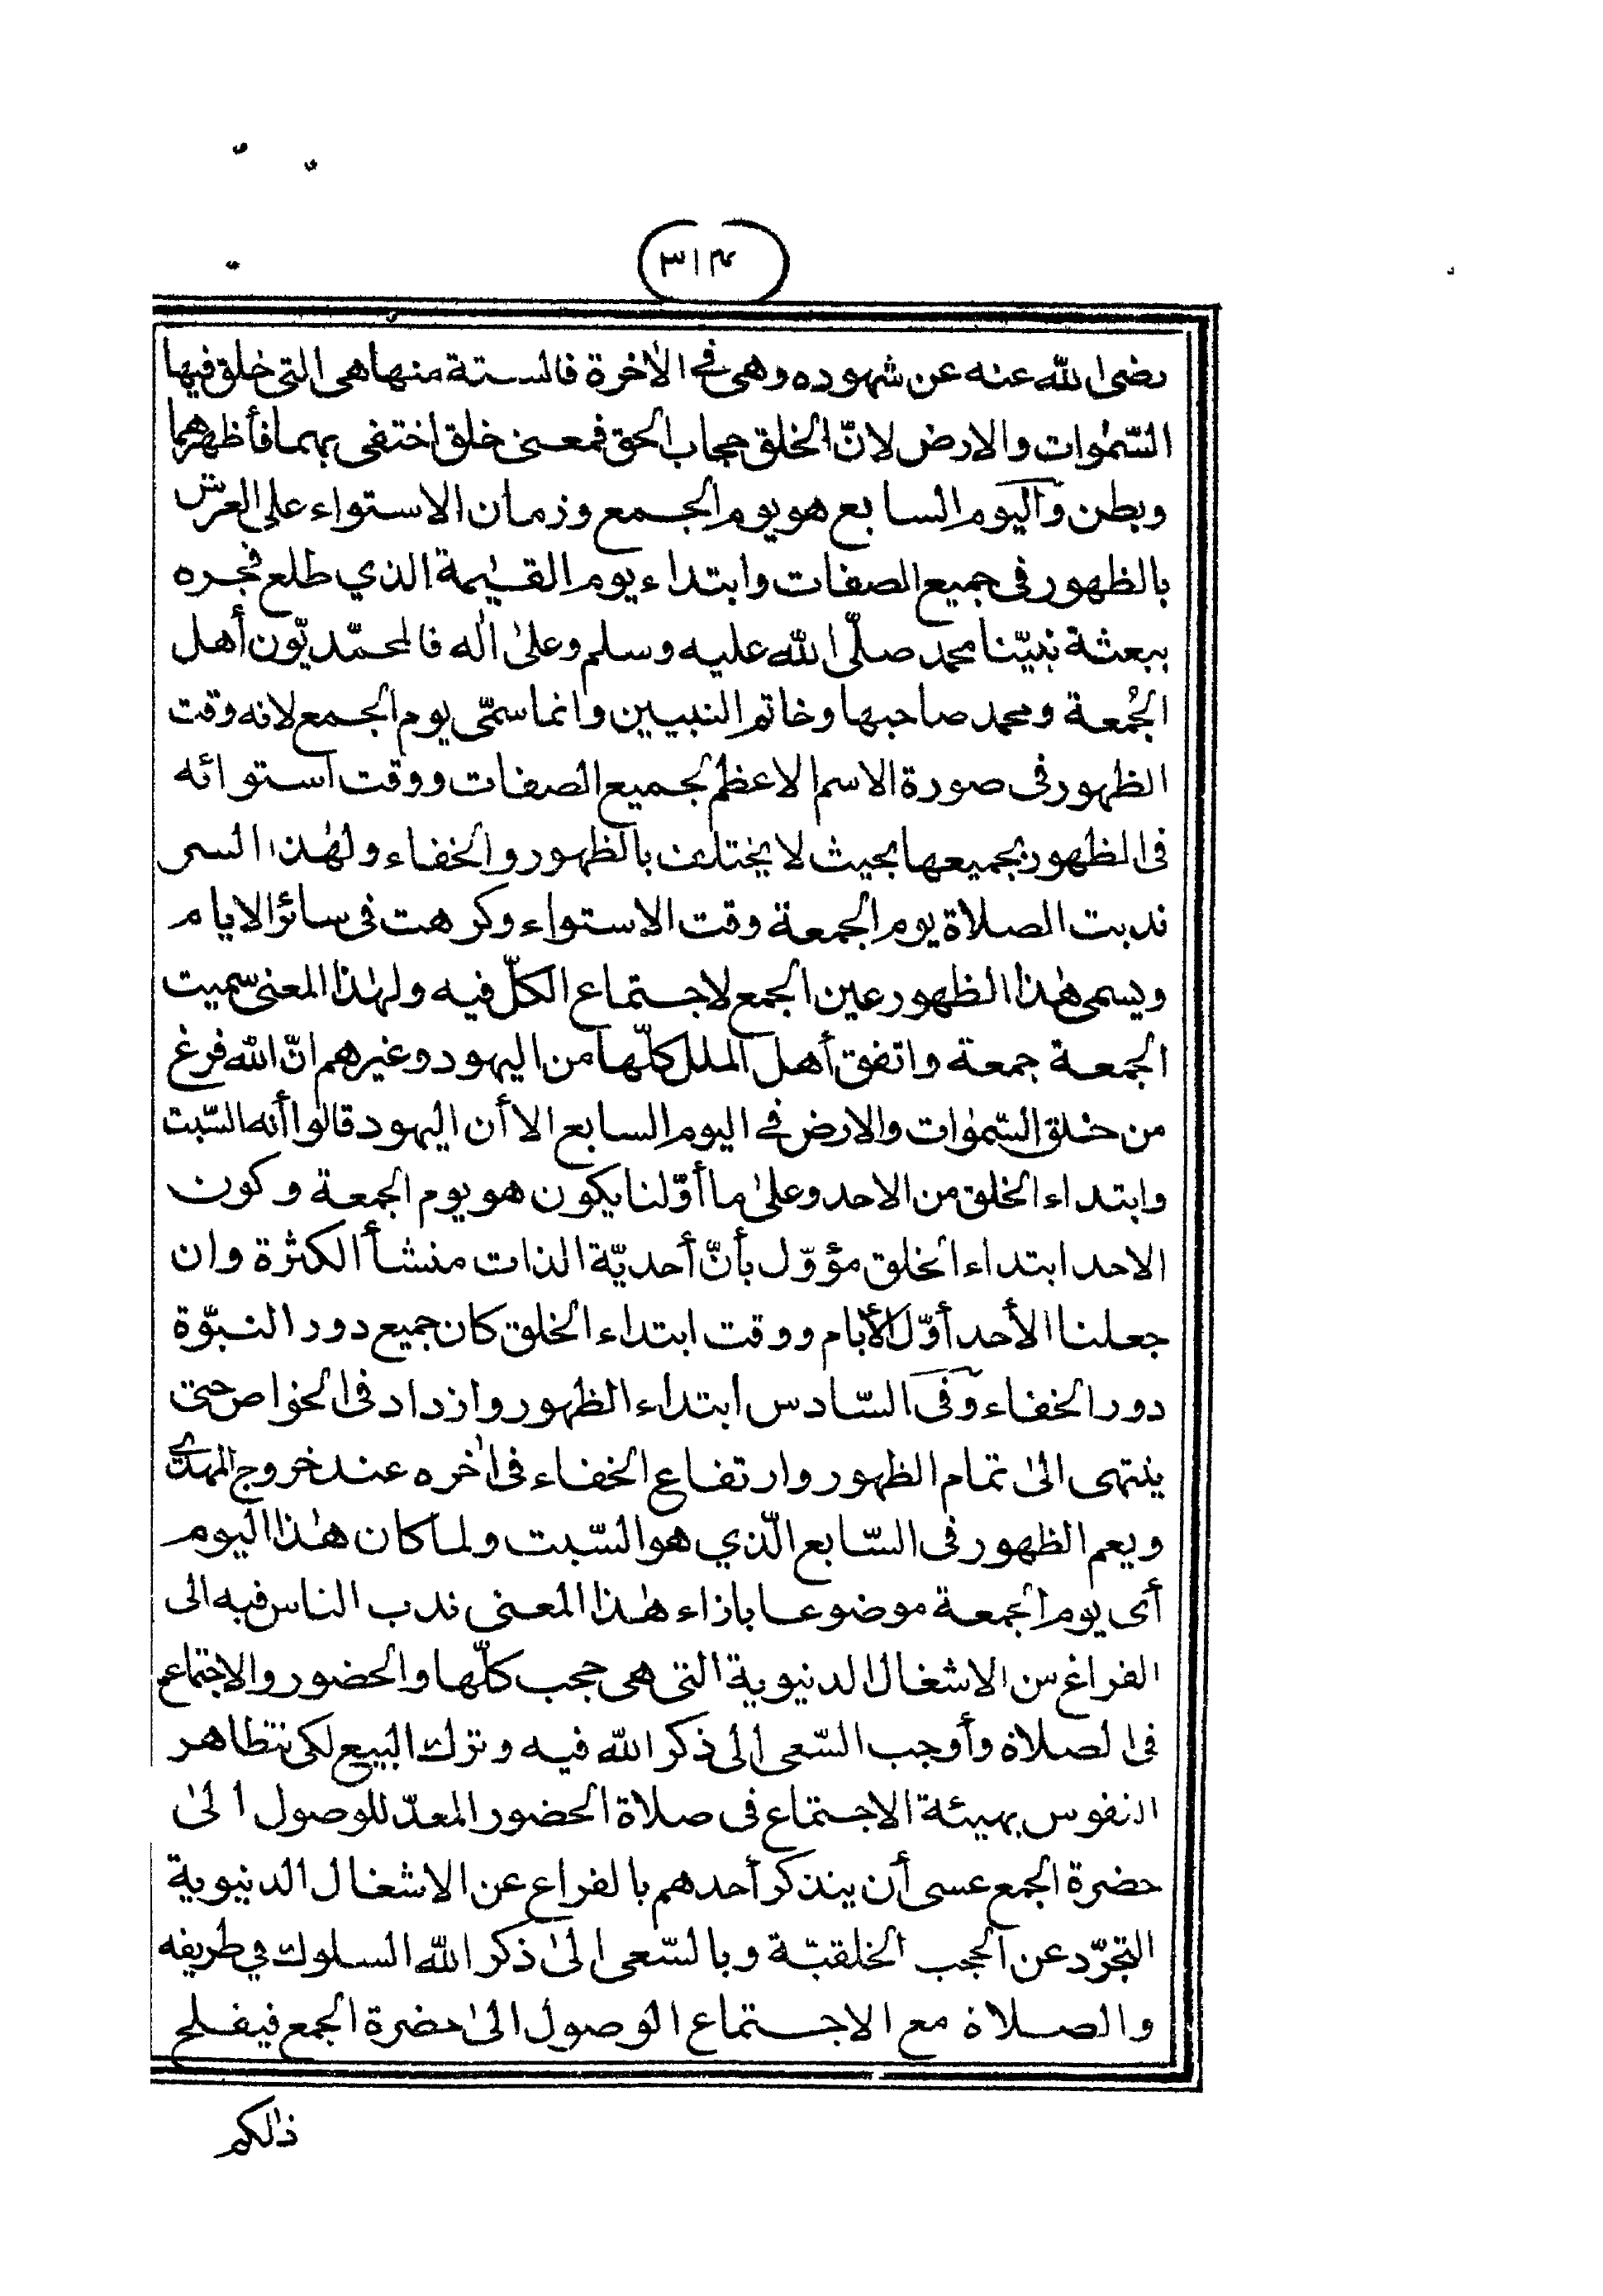 ٣١٤
رضى الله عنه عن شهوده وهى فى الاٰخرة فالستة منها هى التى خلق فيها
السّمٰوات والارض لانّ الخلق حجاب الحق فمعنى خلق اختفى بهما فأظهرهما
وبطن واليوم السابع هو يوم الجمع وزمان الاستواء على العرش
بالظهور فى جميع الصفات وابتداء يوم القيٰمة الذي طلع فجره
ببعثة نبيّنا محمد صلّى الله عليه وسلم وعلىٰ اٰله فالمحمّديّون أهل
الجُمعة ومحمد صاحبها وخاتم النبيين وانما سمّى يوم الجمع لانه وقت
الظهور فى صورة الاسم الاعظم لجميع الصفات ووقت استوائه
فى الظهور بجميعها بحيث لا يختلف بالظهور والخفاء ولهٰذا السر
ندبت الصلاة يوم الجمعة وقت الاستواء وكرهت فى سائر الايام
ويسمى هٰذا الظهور عين الجمع لاجتماع الكلّ فيه ولهٰذا المعنى سّميت
الجمعة جمعة واتفق أهل الملل كلّها من اليهود وغيرهم انّ الله فرغ
من خلق السّمٰوات والارض فى اليوم السابع الا أن اليهود قالوا أنه السّبت
وابتداء الخلق من الاحد وعلىٰ ما أوّلنا يكون هو يوم الجمعة وكون
الاحد ابتداء الخلق مؤوّل بأنّ أحديّة الذات منشأ الكثرة وان
جعلنا الأحد أوّل الأيام ووقت ابتداء الخلق كان جميع دور النبوّة
دور الخفاء وفى السّادس ابتداء الظهور وازداد فى الخواص حتى
ينتهى الىٰ تمام الظهور وارتفاع الخفاء فى اٰخره عند خروج المهدىّ
ويعم الظهور فى السّابع الّذي هو السّبت ولما كان هٰذا اليوم
أى يوم الجمعة موضوعا بازاء هٰذا المعنى ندب الناس فيه الى
الفراغ من الاشغال الدنيوية التى هى حجب كلّها والحضور والاجتماع
فى الصلاة وأوجب السّعى الى ذكر الله فيه وترك البيع لكى تتظاهر
النفوس بهيئة الاجتماع فى صلاة الحضور المعدّ للوصول الىٰ
حضرة الجمع عسى أن يتذكر أحدهم بالفراغ عن الاشغال الدنيوية
التجرّد عن الحجب الخلقيّة وبالسّعى الىٰ ذكر الله السلوك في طريقه
والصلاة مع الاجتماع الوصول الىٰ حضرة الجمع فيفلح
ذٰلكم